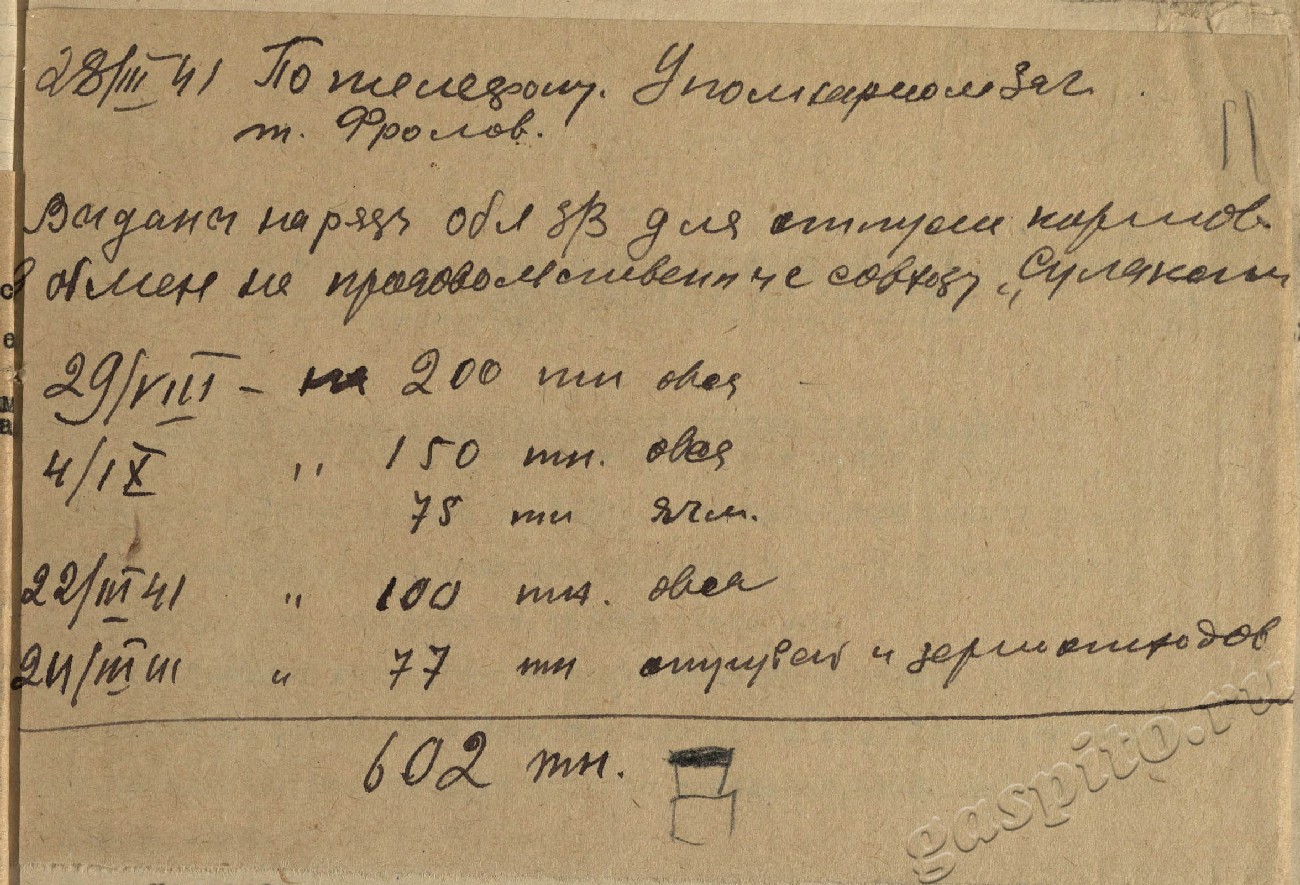 28/III 41 По телефону. Уполнаркомзаг.
т. Фролов.
Выданы наряды обл для отпуска кормов
в обмен на продовольственные совхозу „
29/VIII – на 200 тн овса
4/IX " 150 тн. овса
75 тн ячм.
22/III 41 " 100 тн. овса
24/III 41 " 77 тн отрубей и зерноотходов
602 тн.
gaspito.ru